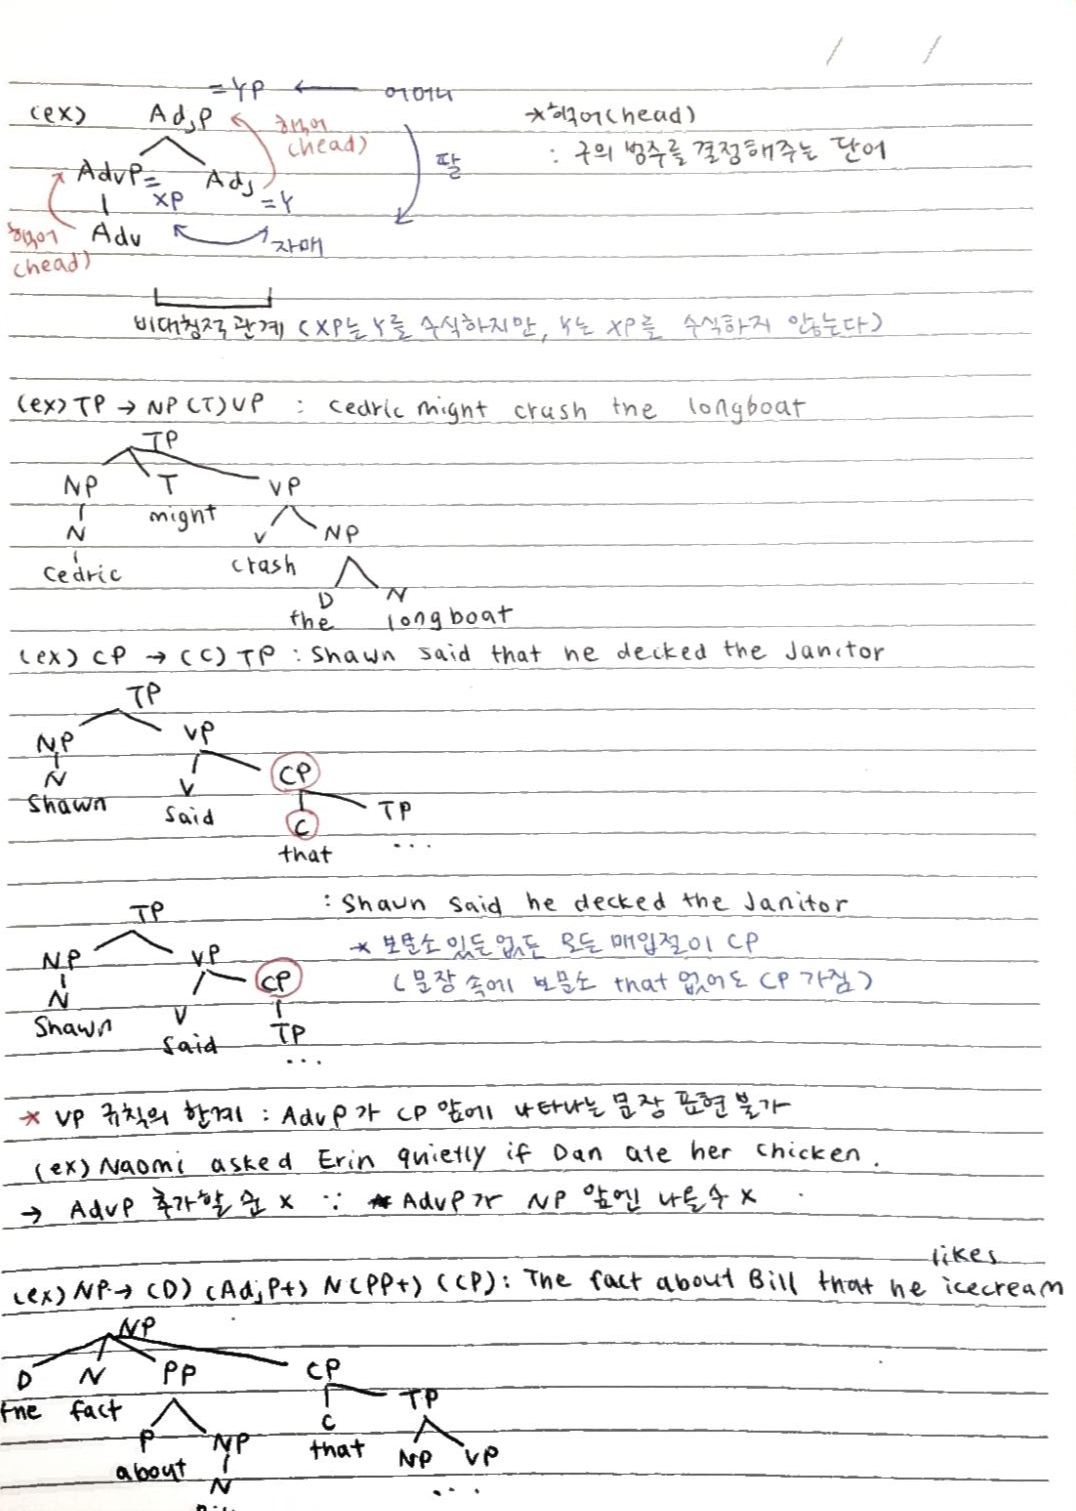 / /
=YP ← 어머니
(ex) AdjP 핵어 (head) *핵어(head)
: 구의 범주를 결정해주는 단어
AdvP = XP Adj = Y 딸
핵어 (head) Adv 자매
비대칭적 관계 (XP는 Y를 수식하지만, Y는 XP를 수식하지 않는다)
(ex) TP → NP (T) VP : Cedric might crash the longboat
TP
NP T VP
N might V NP
Cedric crash D N
the longboat
(ex) CP → (C) TP : Shawn said that he decked the Janitor
TP
NP VP
N V CP
Shawn said C TP
that ...
: Shawn said he decked the Janitor
TP
NP VP CP * 보문소 있든 없든 모든 매입절이 CP
N V (문장 속에 보문소 that 없어도 CP 가짐)
Shawn said TP
...
* VP 규칙의 한계 : AdvP가 CP 앞에 나타나는 문장 표현 불가
(ex) Naomi asked Erin quietly if Dan ate her chicken.
→ AdvP 추가할 순 x ∵ AdvP가 NP 앞엔 나올 수 x
likes
(ex) NP → (D) (AdjP+) N (PP+) (CP) : The fact about Bill that he icecream
NP
D N PP CP
the fact P NP C TP
about N that NP VP
...